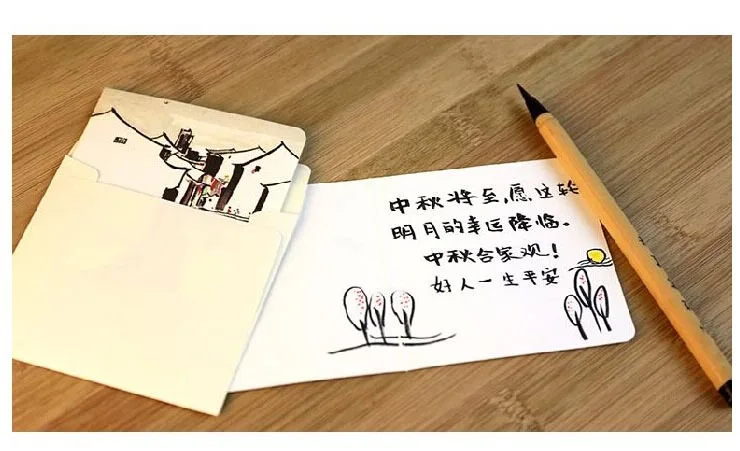 中秋将至,愿这轮
明月的幸运降临。
中秋合家观!
好人一生平安